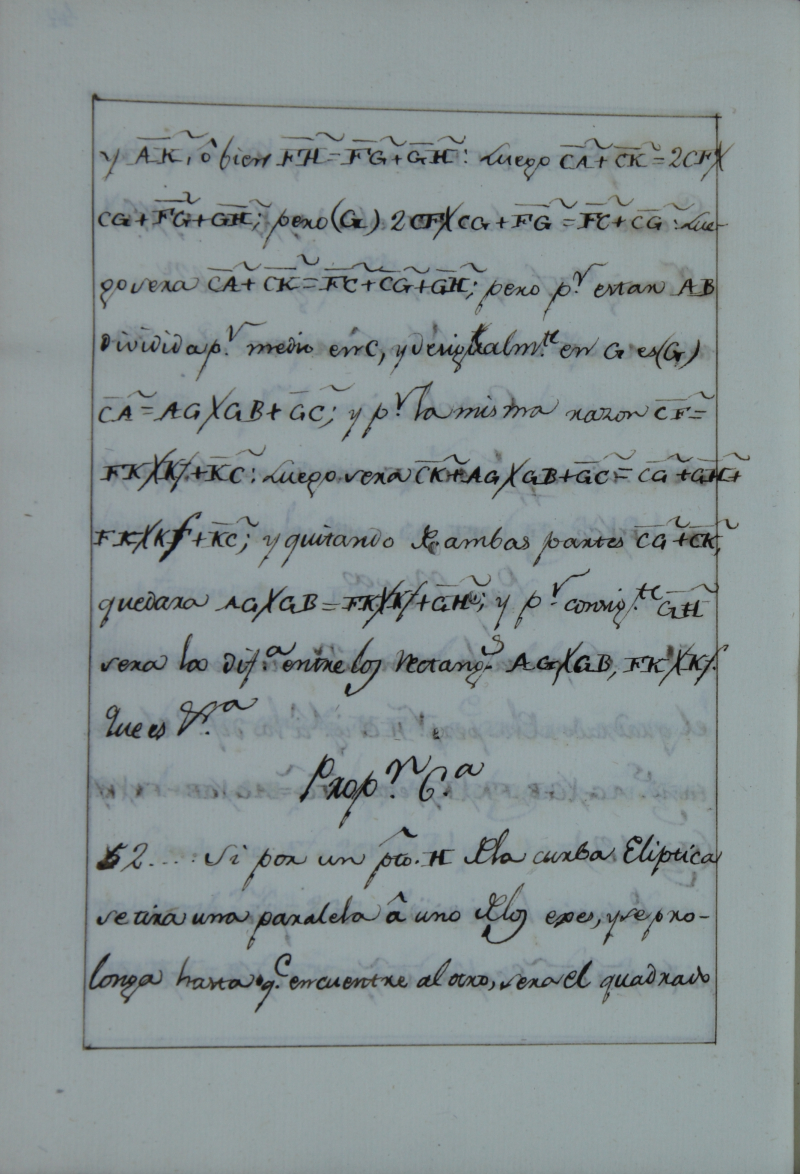 y A͞K͠, ô bien F͞H͠ = F͞G͠ + G͞H͠: Luego C͞A͠ + C͞K͠ = 2CF×
CG + F͞G͠ + G͞H͠; pero (G) 2CF×CG + F͞G͠ = F͞C͠ + C͞G͠: Lue-
go sera C͞A͠ + C͞K͠ = F͞C͠ + C͞G͠ + G͞H͠; pero p.r estar AB
dividida p.r medio en C, y desigualm.te en G es (G)
C͞A͠ = AG×GB + G͞C͠; y p.r la misma razon C͞F͠ =
FK×Kf + K͞C͠: Luego sera C͞K͠ + AG×GB + G͞C͠ = C͞G͠ + G͞H͠ +
FK×Kf + K͞C͠; y quitando de ambas partes C͞G͠ + C͞K͠,
quedara AG×GB = FK×Kf + G͞H͠; y p.r consig.te G͞H͠
sera la dif.a entre los rectang.s AG×GB, FK×Kf.
Que es
Prop.n 6.a
52.... Si por un pto. H de la curba Eliptica
se tira una paralela â uno de los exes, y se pro-
longa hasta q.e encuentre al otro, sera el quadrado